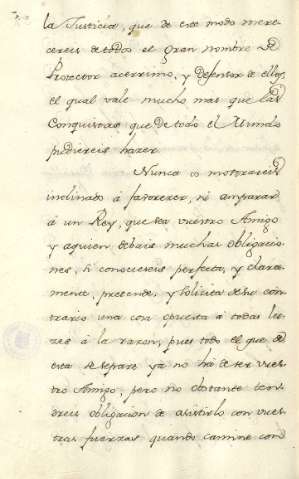 la Justicia, que de este modo mere-
cereis de todos el gran nombre de
Protector acerrimo, y Defensor de ellos,
el qual vale mucho mas que las
Conquistas, que de todo el Mundo
pudiereis hazer.
Nunca os mostrareis
inclinado á favorezer, ni amparar
á un Rey, que sea vuestro Amigo
y aquien debais muchas obligacio-
nes, si conocieseis perfecta, y clara-
mente, pretende, y solicita de su con-
trario una cosa opuesta á todas le-
ies á la razon, pues todo el que de
esta se separe ya no há de ser vues-
tro Amigo, pero no obstante ten-
dreis obligacion de asistirlo con vues-
tras fuerzas quando camine con